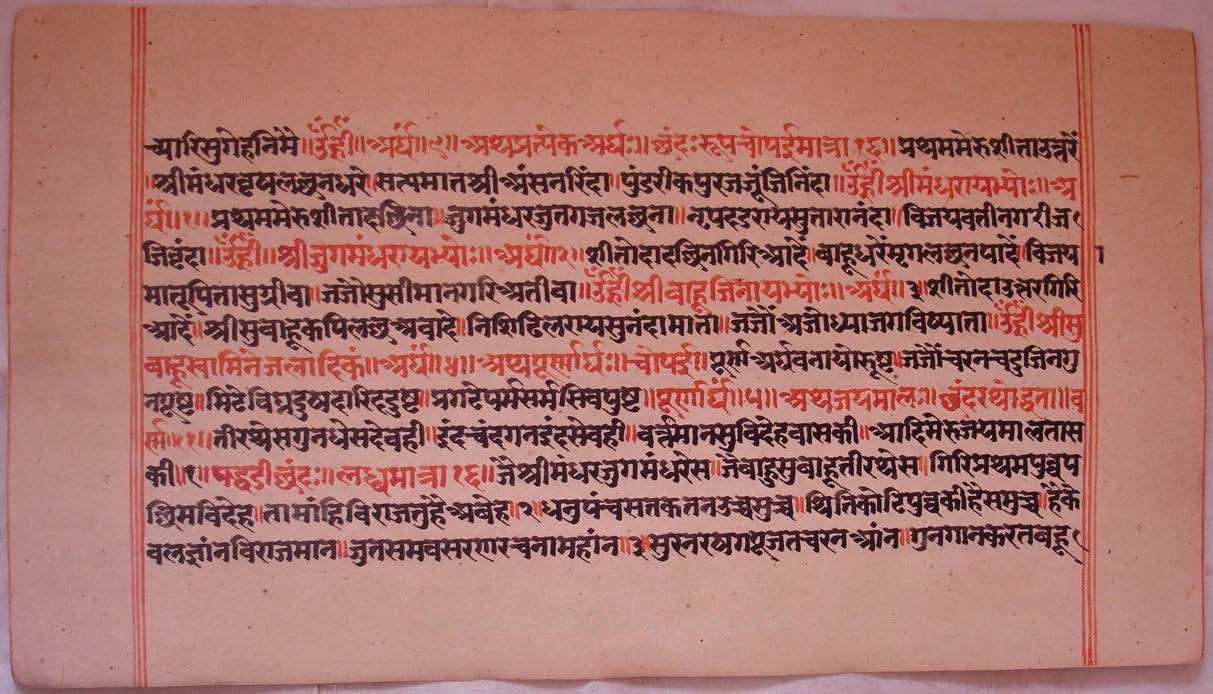 च्यारिसुगेहनिमे॥ॐह्रीं॥अर्घं॥९॥अथप्रत्येकअर्घः॥छंदःरूपचोपईमात्रा१६॥प्रथममेरुशीताउत्तरें
।श्रीमंधरवृषलछनधरे।सत्यमातश्रीअंसनरिंदा॥पुंडरीकपुरजजूंजिनिंदा॥ॐह्रींश्रीमंधरायभ्योः॥अ
र्घं॥१॥प्रथममेरुशीतादछिना॥जुगमंधरजुतगजलछना॥नृपदृढरायसुतारानंदा॥विजयवतीनगरीज
जिहंदा॥ॐह्रीं॥श्रीजुगमंधरायभ्योः॥अर्घं॥२॥शीतोदादछिनगिरिआदें॥बाहूधरेंमृगलछनपादें॥विजय
मातृपितासुग्रीवा॥जजौसुसीमानगरिअतीवा॥ॐह्रींश्रीबाहूजिनायभ्योः॥अर्घं॥३॥शीतोदाउत्तरगिरि
आदें॥श्रीसुबाहूकपिलछअवादे॥निशिढिलरायसुनंदामाता॥जजौंअजोध्याजगविष्याता॥ॐह्रींश्रीसु
बाहूस्वामिनेजलादिकं॥अर्घं॥४॥अथपूर्णार्घः॥चोपई॥पूर्णअर्घबनायोस्तूष्ट॥जजौंचरनचहुजिनगु
नपृष्ट॥मिटेविघ्नदुषदारिददुष्ट॥प्रगटेपर्मसर्मसिवपुष्ट॥पूर्णार्घं॥५॥अथजयमाल॥छंदरथोद्धता॥व
र्ण११॥तीरथेसगुनधेसदेवही॥इंदचंदगनइंदसेवही॥वर्त्तमानसुविदेहवासकी॥आदिमेरुजयमालतास
की॥१॥पद्धडीछंदः॥लघुमात्रा१६॥जैश्रीमंधरजुगमंधरेस॥जैबाहुसुबाहूतीरथेस॥गिरिप्रथमपुव्वप
छिमविदेहे॥तामांहिविराजतुहैअवेह॥२॥धनुपंचसतकतनउच्चसुच्च॥थितिकोटिपुव्वकीहैसमुच्च॥हैके
वलज्ञांनविराजमान॥जुतसमवसरणरचनामहांन॥३॥सुरनरषगपूजतचरनआंन॥गुनगानकरतबहू